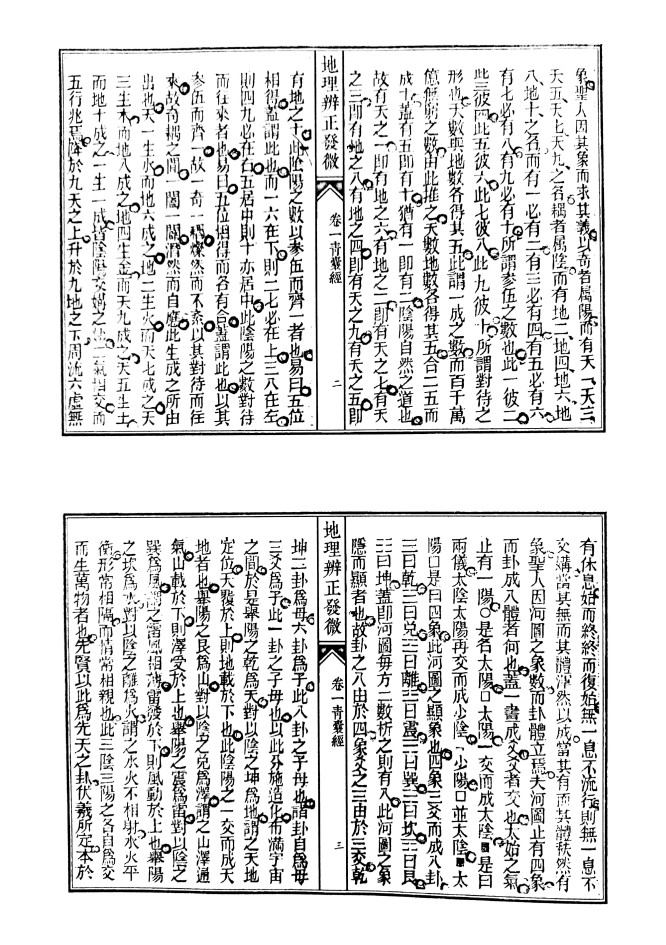 象聖人因其象而求其義以奇者屬陽而有天一天三
天五天七天九之名耦者屬陰而有地二地四地六地
八地十之名而有一必有二有三必有四有五必有六
有七必有八有九必有十所謂參伍之數也此一彼二
此三彼四此五彼六此七彼八此九彼十所謂對待之
形也天數與地數各得其五此謂一成之數而百千萬
億無窮之數由此推之天數地數各得其五合二五而
成十蓋有五即有十猶有一即有二陰陽自然之道也
故有天之一即有地之六有地之二即有天之七有天
之三即有地之八有地之四即有天之九有天之五即
地理辨正發微
卷一青囊經
二
有地之十此陰陽之數以參伍而齊一者也易曰五位
相得蓋謂此也而一六在下則二七必在上三八在左
則四九必在右五居中則十亦居中此陰陽之數對待
而往來者也易曰五位相得而各有合蓋謂此也以其
參伍而齊一故一奇一耦燦然而不紊以其對待而往
來故奇耦之間一闔一闢潛然而自應此生成之所由
出也天一生水而地六成之地二生火而天七成之天
三生木而地八成之地四生金而天九成之天五生土
而地十成之一生一成皆陰陽交媾之妙二氣相交而
五行兆焉降於九天之上升於九地之下周流六虛無
有休息始而終終而復始無一息不流行則無一息不
交媾當其無而其體渾然以成當其有而其體秩然有
象聖人因河圖之象數而卦體立焉夫河圖止有四象
而卦成八體者何也蓋一畫成爻爻者交也太始之氣
止有一陽○是名太陽口太陽一交而成太陰 是曰
兩儀太陰太陽再交而成少陰 少陽口並太陰 太
陽口是曰四象此河圖之顯象也四象三交而成八卦
☰曰乾☱曰兌☲曰離☳曰震☴曰巽☵曰坎☶曰艮
☷曰坤蓋即河圖每方二數析之則有八此河圖之象
隱而顯者也故卦之八由於四象爻之三由於三交乾
地理辨正發微
卷一青囊經
三
坤二卦爲母六卦爲子此八卦之子母也諸卦自爲母
三爻爲子此一卦之子母也以此分施造化布滿宇宙
之間於是舉陽之乾爲天對以陰之坤爲地謂之天地
定位天覆於上則地載於下也此陰陽之一交而成天
地者也舉陽之艮爲山對以陰之兌爲澤謂之山澤通
氣山載於下則澤受於上也舉陽之震爲雷對以陰之
巽爲風謂之雷風相薄雷發於下則風動於上也舉陽
之坎爲水對以陰之離爲火謂之水火不相射水火平
衡形常相隔而情常相親也此三陰三陽之各自爲交
而生萬物者也先賢以此爲先天之卦伏羲所定本於